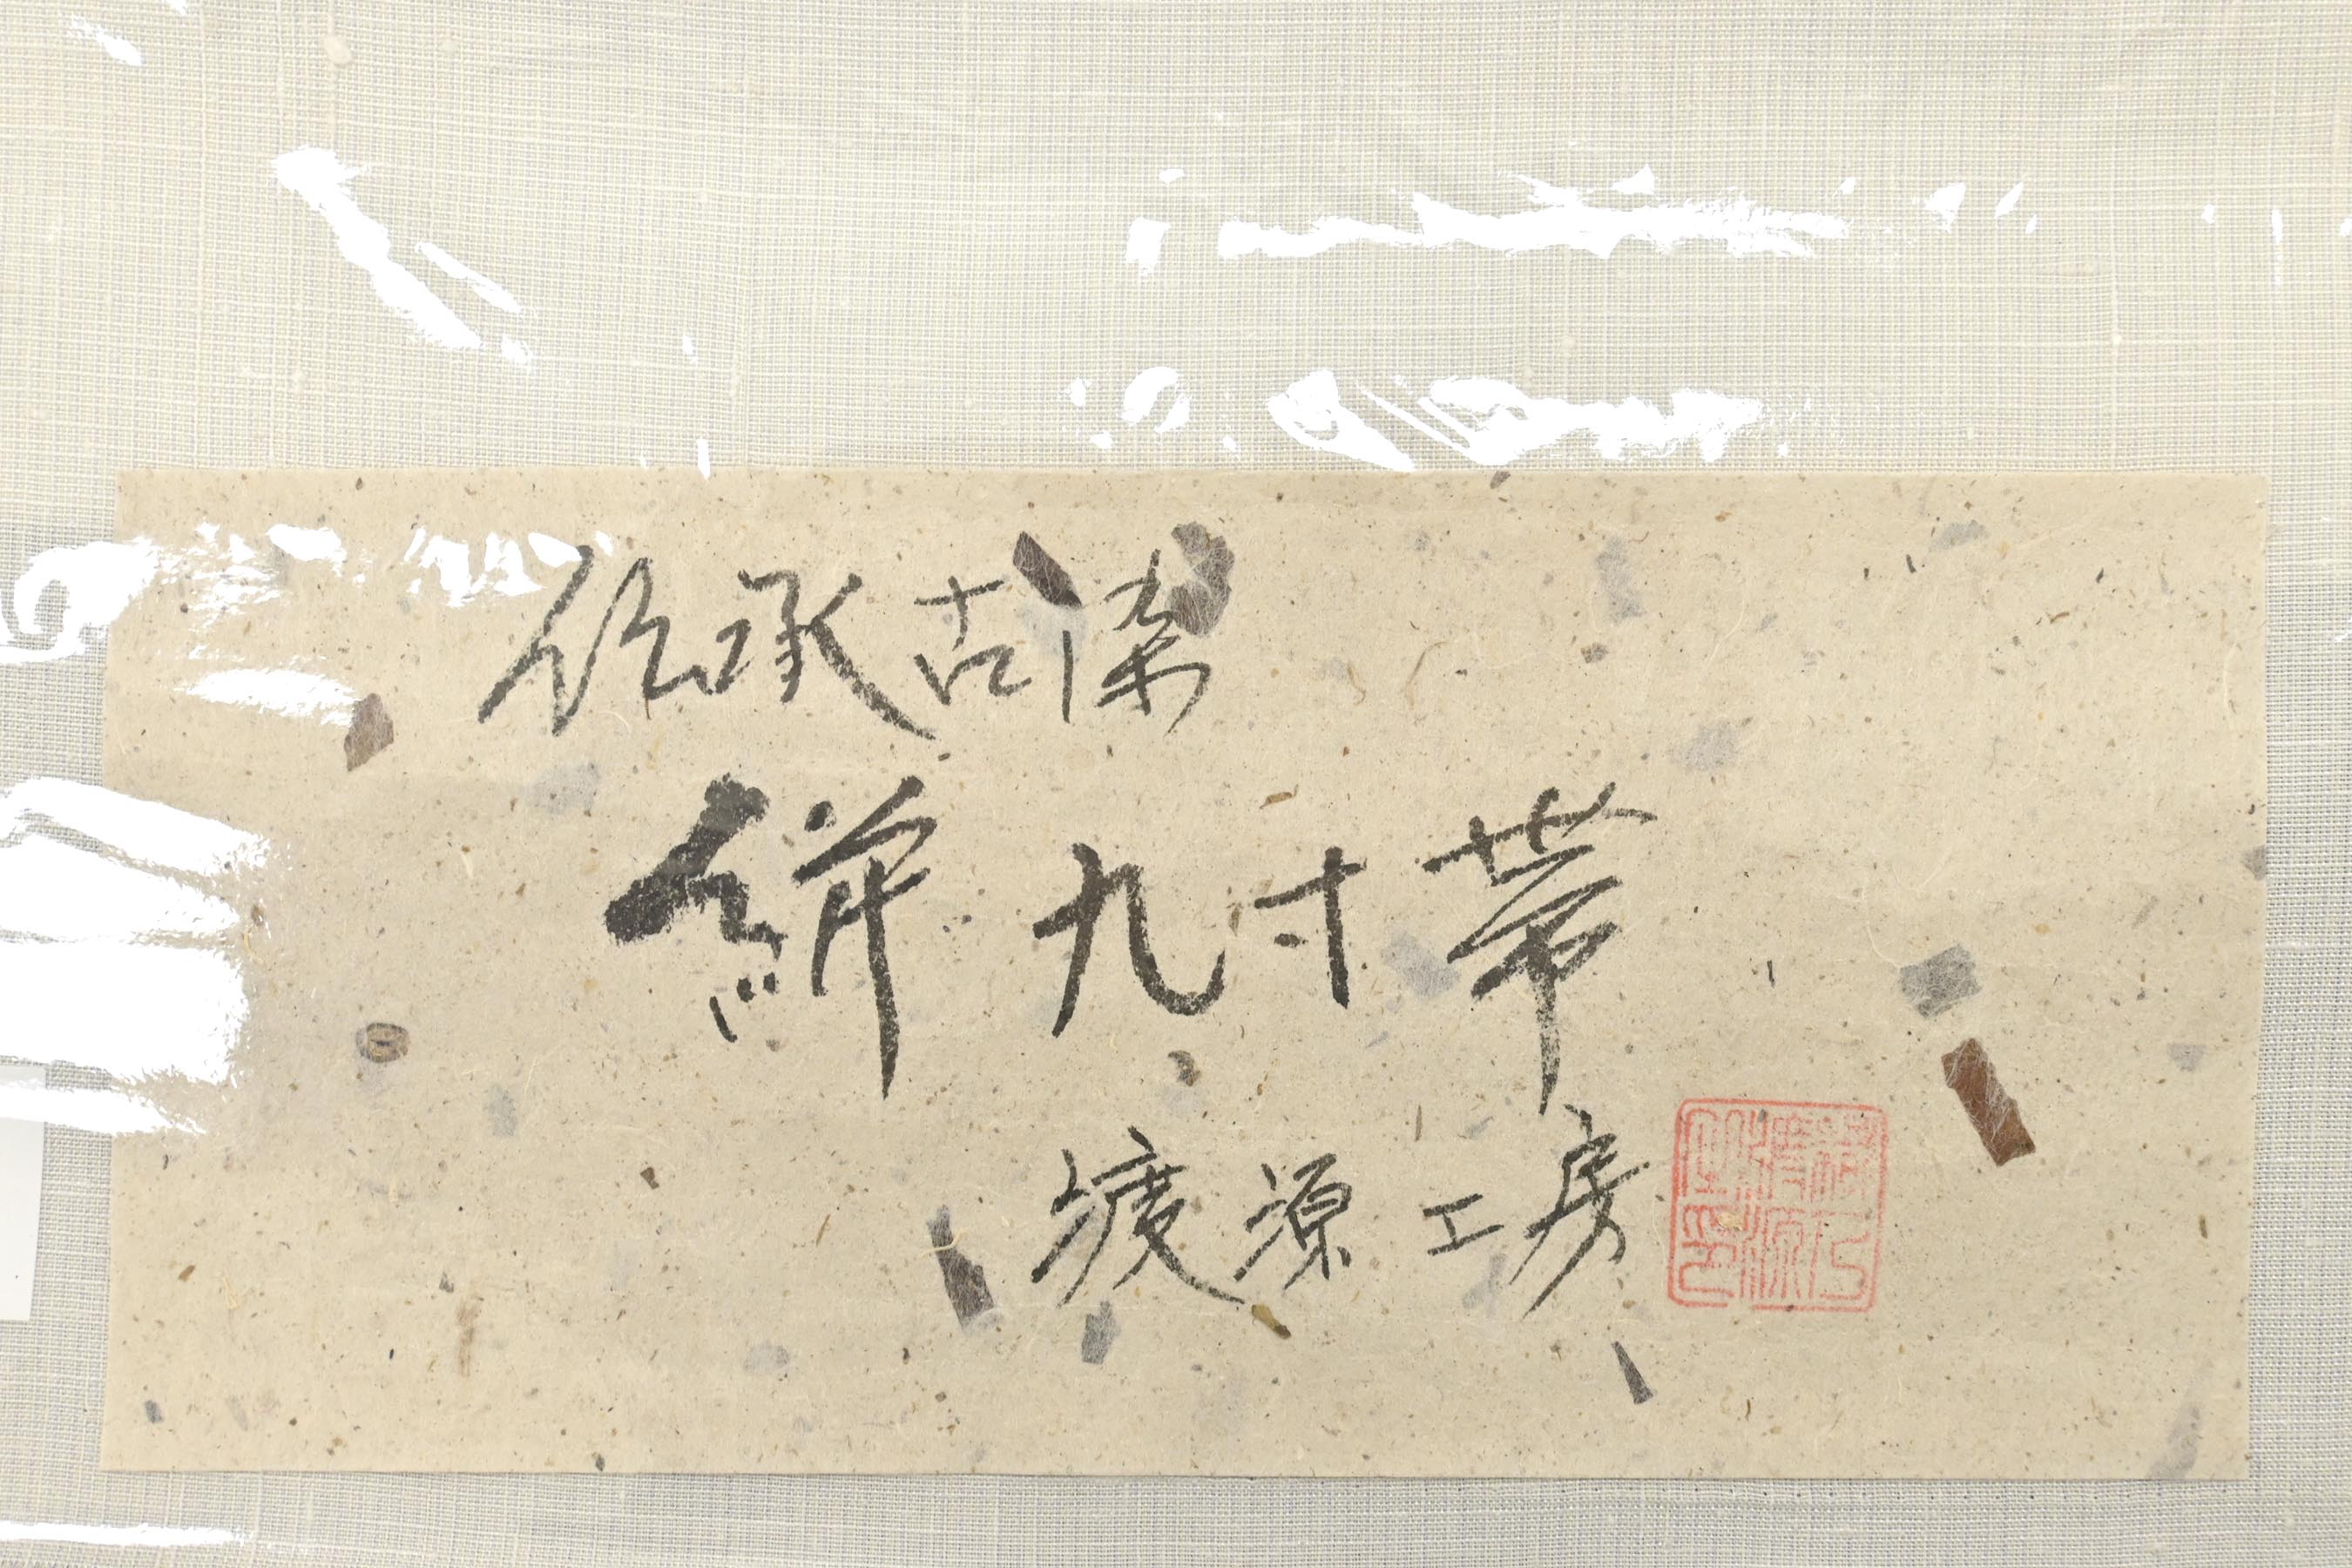 伝承古法
絣 九寸帯
渡源工房